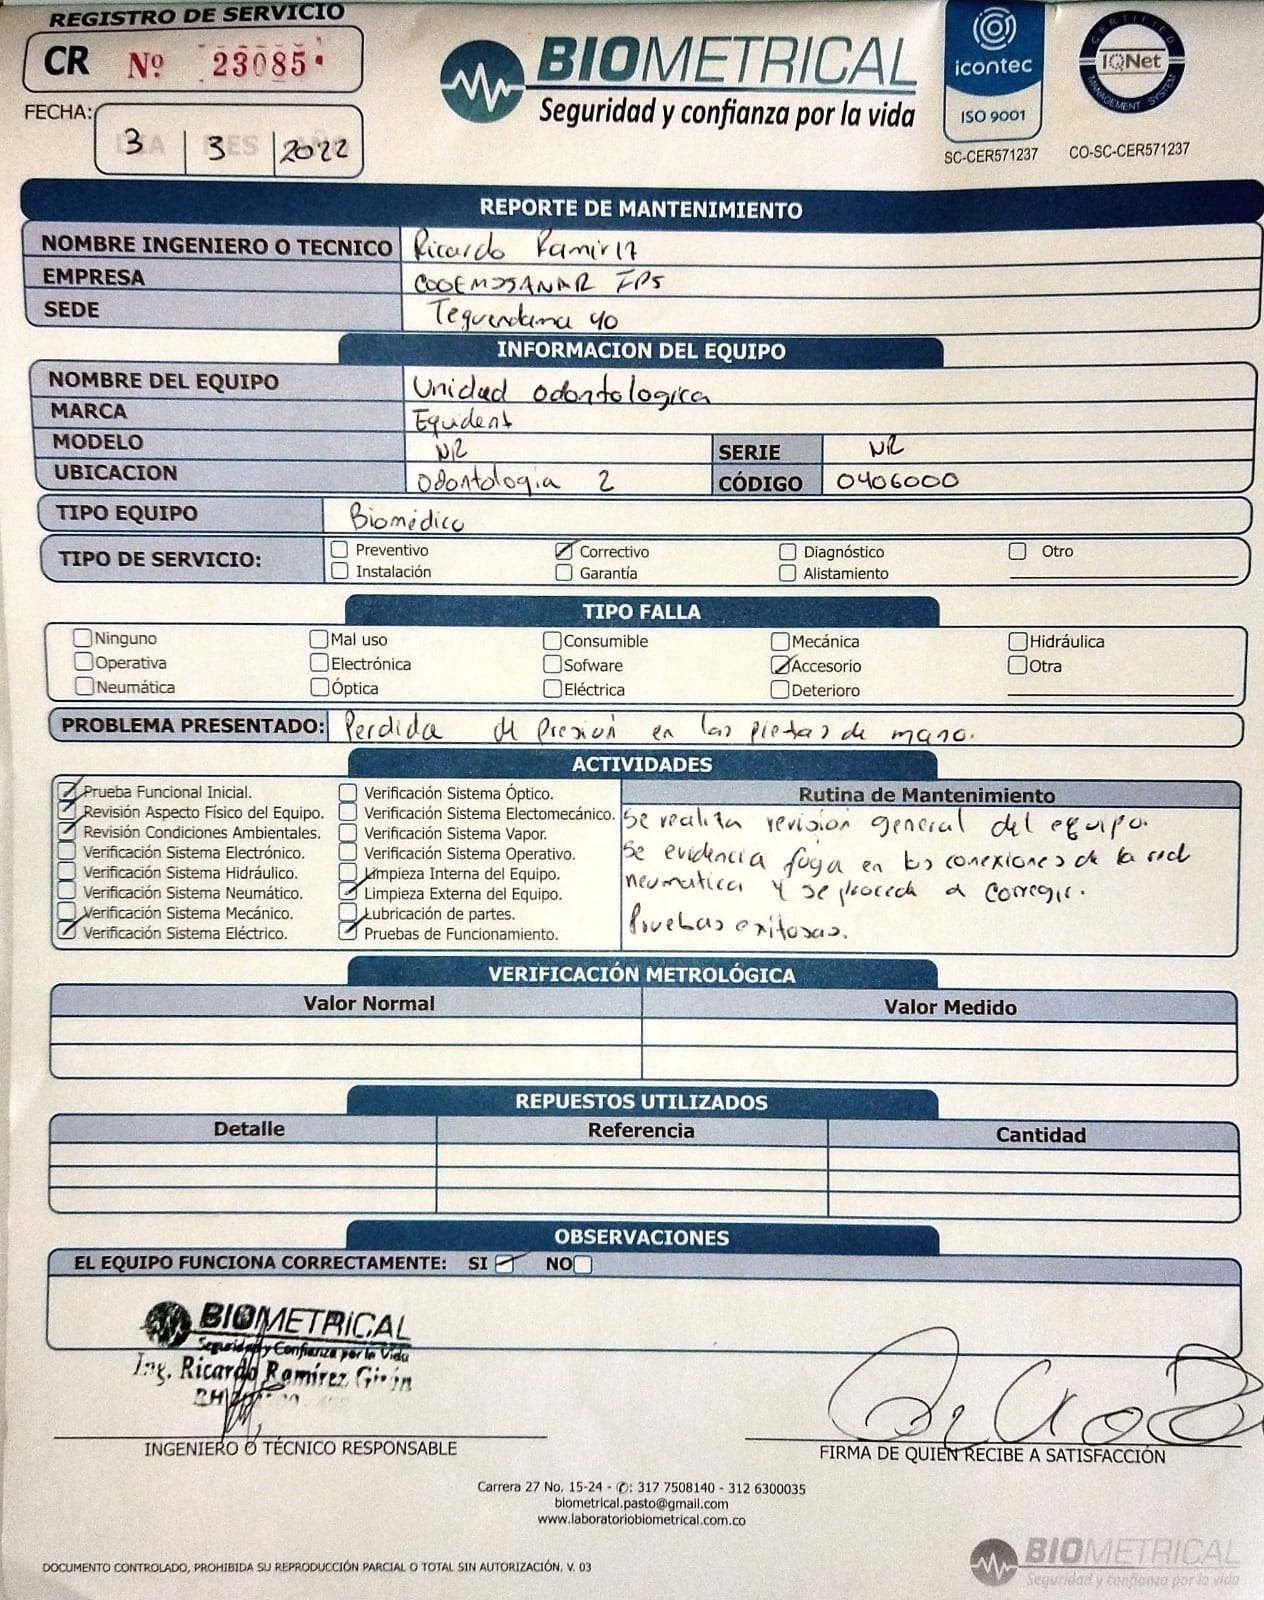 REGISTRO DE SERVICIO
CR Nº 23085
FECHA: 3 3 2022
BIOMETRICAL
Seguridad y confianza por la vida
icontec
ISO 9001
SC-CER571237
CERTIFIED
IQNet
MANAGEMENT SYSTEM
CO-SC-CER571237
REPORTE DE MANTENIMIENTO
NOMBRE INGENIERO O TECNICO Ricardo
EMPRESA IPS
SEDE Tequendama 40
INFORMACION DEL EQUIPO
NOMBRE DEL EQUIPO Unidad odontologica
MARCA Equident
MODELO NR SERIE NR
UBICACION Odontologia 2 CÓDIGO 0406000
TIPO EQUIPO Biomédico
TIPO DE SERVICIO:
Preventivo Correctivo Diagnóstico Otro
Instalación Garantía Alistamiento
TIPO FALLA
Ninguno Mal uso Consumible Mecánica Hidráulica
Operativa Electrónica Sofware Accesorio Otra
Neumática Óptica Eléctrica Deterioro
PROBLEMA PRESENTADO: Perdida de presión en las piezas de mano.
ACTIVIDADES
Prueba Funcional Inicial.
Revisión Aspecto Físico del Equipo.
Revisión Condiciones Ambientales.
Verificación Sistema Electrónico.
Verificación Sistema Hidráulico.
Verificación Sistema Neumático.
Verificación Sistema Mecánico.
Verificación Sistema Eléctrico.
Verificación Sistema Óptico.
Verificación Sistema Electomecánico.
Verificación Sistema Vapor.
Verificación Sistema Operativo.
Limpieza Interna del Equipo.
Limpieza Externa del Equipo.
Lubricación de partes.
Pruebas de Funcionamiento.
Rutina de Mantenimiento
Se realiza revisión general del equipo.
Se evidencia fuga en las conexiones de la red
neumatica y se procede a corregir.
Pruebas exitosas.
VERIFICACIÓN METROLÓGICA
Valor Normal Valor Medido
REPUESTOS UTILIZADOS
Detalle Referencia Cantidad
OBSERVACIONES
EL EQUIPO FUNCIONA CORRECTAMENTE: SI NO
BIOMETRICAL
Seguridad y Confianza por la Vida
Ing. Ricardo Ramírez Girón
INGENIERO O TÉCNICO RESPONSABLE
FIRMA DE QUIEN RECIBE A SATISFACCIÓN
Carrera 27 No. 15-24 - ✆: 317 7508140 - 312 6300035
biometrical.pasto@gmail.com
www.laboratoriobiometrical.com.co
DOCUMENTO CONTROLADO, PROHIBIDA SU REPRODUCCIÓN PARCIAL O TOTAL SIN AUTORIZACIÓN. V. 03
BIOMETRICAL
Seguridad y confianza por la vida